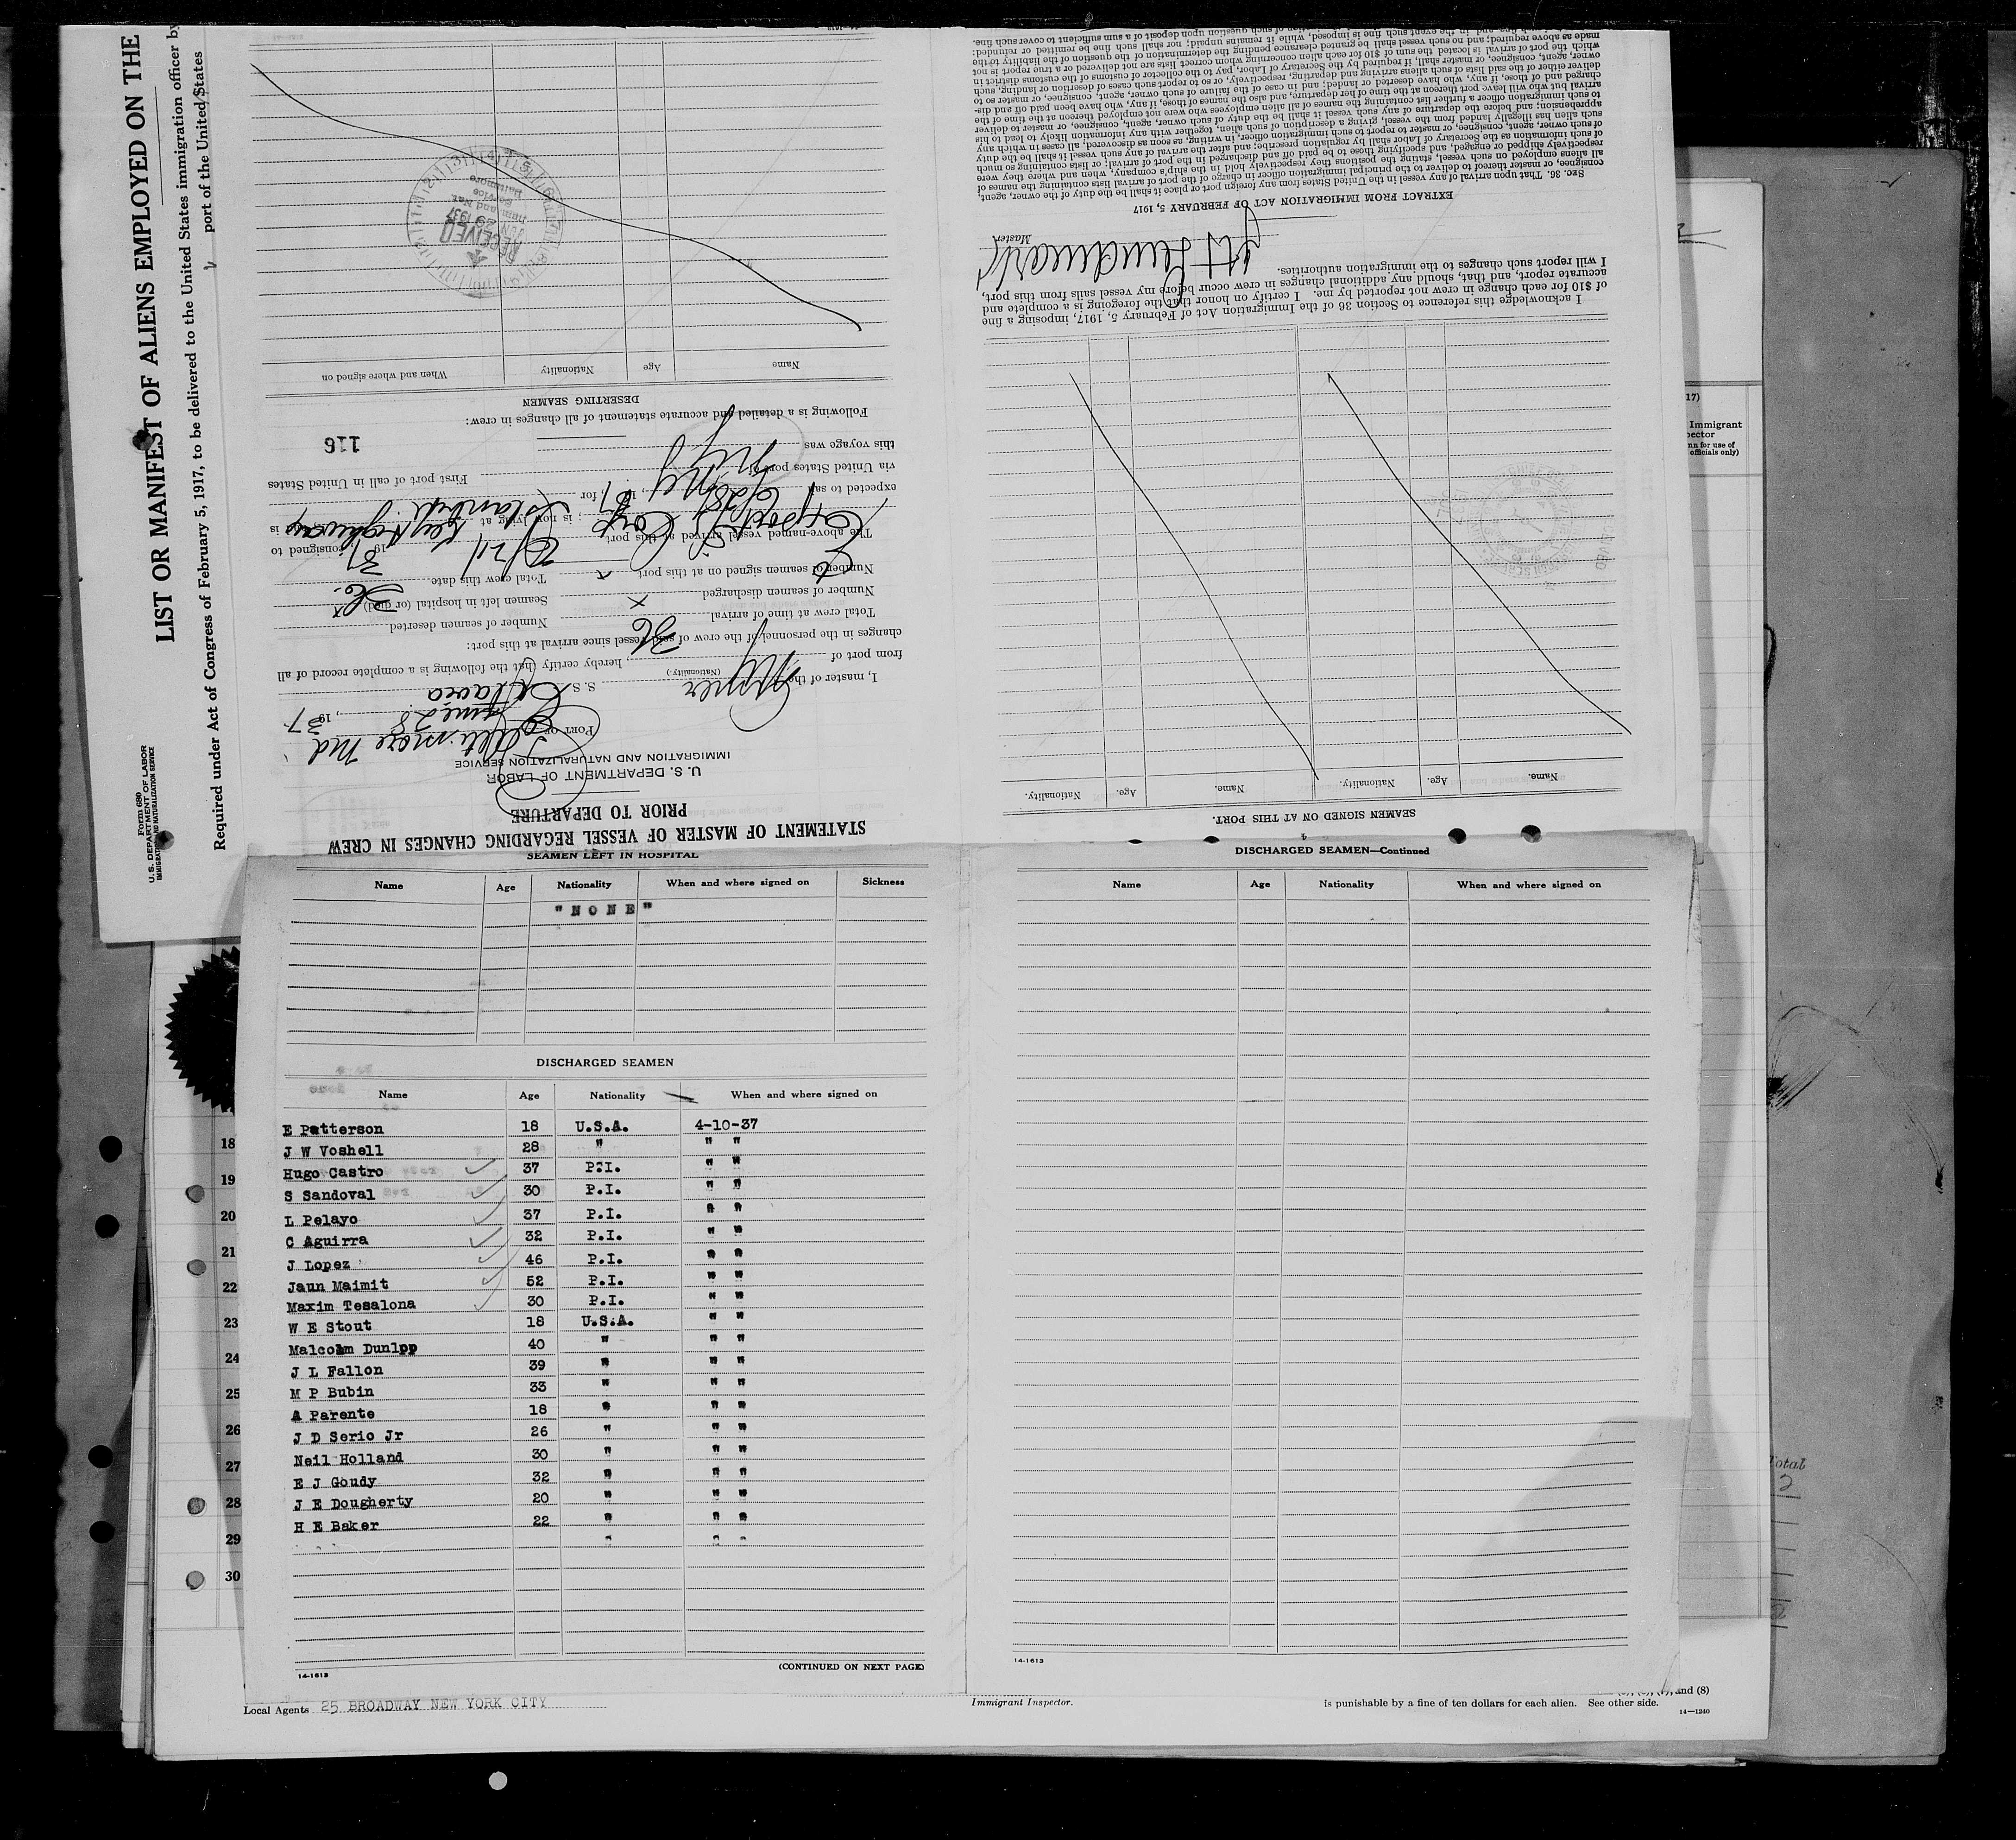 Form 680
U.S. DEPARTMENT OF LABOR
IMMIGRATION AND NATURALIZATION SERVICE
LIST OR MANIFEST OF ALIENS EMPLOYED ON THE
Required under Act of Congress of February 5, 1917, to be delivered to the United States immigration officer by
port of the United States
STATEMENT OF MASTER OF VESSEL REGARDING CHANGES IN CREW
PRIOR TO DEPARTURE
U. S. DEPARTMENT OF LABOR
IMMIGRATION AND NATURALIZATION SERVICE
Port of Baltimore Md
June 28, 1937
I, master of the S. S.
(Nationality.)
from port of NY, hereby certify that the following is a complete record of all
changes in the personnel of the crew of said vessel since arrival at this port:
Total crew at time of arrival 36 Number of seamen deserted
Number of seamen discharged x Seamen left in hospital (or died) x
Number of seamen signed on at this port x Total crew this date 36.
The above-named vessel arrived at this port 1937 consigned to
Export S. Corp; is now lying at
expected to sail 6/28, 1937 for Istanbul
via United States port of NY First port of call in United States
this voyage was NY
116
Following is a detailed and accurate statement of all changes in crew:
DESERTING SEAMEN
Name Age Nationality When and where signed on
RECEIVED
JUN 29 1937
Immi and Nat.
Service
Baltimore
SEAMEN SIGNED ON AT THIS PORT.
Name. Age. Nationality. Name. Age. Nationality.
I acknowledge this reference to Section 36 of the Immigration Act of February 5, 1917, imposing a fine
of $10 for each change in crew not reported by me. I certify on honor that the foregoing is a complete and
accurate report, and that, should any additional changes in crew occur before my vessel sails from this port,
I will report such changes to the immigration authorities.
Master.
EXTRACT FROM IMMIGRATION ACT OF FEBRUARY 5, 1917
SEC. 36. That upon arrival of any vessel in the United States from any foreign port or place it shall be the duty of the owner, agent,
consignee, or master thereof to deliver to the principal immigration officer in charge of the port of arrival lists containing the names of
all aliens employed on such vessel, stating the positions they respectively hold in the ship's company, when and where they were
respectively shipped or engaged, and specifying those to be paid off and discharged in the port of arrival; or lists containing so much
of such information as the Secretary of Labor shall by regulation prescribe; and after the arrival of any such vessel it shall be the duty
of such owner, agent, consignee, or master to report to such immigration officer, in writing, as soon as discovered, all cases in which any
such alien has illegally landed from the vessel, giving a description of such alien, together with any information likely to lead to his
apprehension; and before the departure of any such vessel it shall be the duty of such owner, agent, consignee, or master to deliver
to such immigration officer a further list containing the names of all alien employees who were not employed thereon at the time of the
arrival but who will leave port thereon at the time of her departure, and also the names of those, if any, who have been paid off and dis-
charged and of those, if any, who have deserted or landed; and in case of the failure of such owner, agent, consignee, or master so to
deliver either of the said lists of such aliens arriving and departing, respectively, or so to report such cases of desertion or landing, such
owner, agent, consignee, or master, shall, if required by the Secretary of Labor, pay to the collector of customs of the customs district in
which the port of arrival is located the sum of $10 for each alien concerning whom correct lists are not delivered or a true report is not
made as above required; and no such vessel shall be granted clearance pending the determination of the question of the liability to the
SEAMEN LEFT IN HOSPITAL
Name Age Nationality When and where signed on Sickness
"NONE"
DISCHARGED SEAMEN
Name Age Nationality When and where signed on
E Patterson 18 U.S.A. 4-10-37
J W Voshell 28 " " "
Hugo Castro 37 P.I. " "
S Sandoval 30 P.I. " "
L Pelayo 37 P.I. " "
C Aguirra 32 P.I. " "
J Lopez 46 P.I. " "
Jaun Maimit 52 P.I. " "
Maxim Tesalona 30 P.I. " "
W E Stout 18 U.S.A. " "
Malcolm Dunlpp 40 " " "
J L Fallon 39 " " "
M P Bubin 33 " " "
A Parente 18 " " "
J D Serio Jr 26 " " "
Neil Holland 30 " " "
E J Goudy 32 " " "
J E Dougherty 20 " " "
H E Baker 22 " " "
(CONTINUED ON NEXT PAGE)
14-1613
DISCHARGED SEAMEN—Continued
Name Age Nationality When and where signed on
14-1613
18
19
20
21
22
23
24
25
26
27
28
29
30
Immigrant
officials only)
Total
2
Local Agents 25 BROADWAY NEW YORK CITY
Immigrant Inspector.
and (8)
is punishable by a fine of ten dollars for each alien. See other side.
14—1240